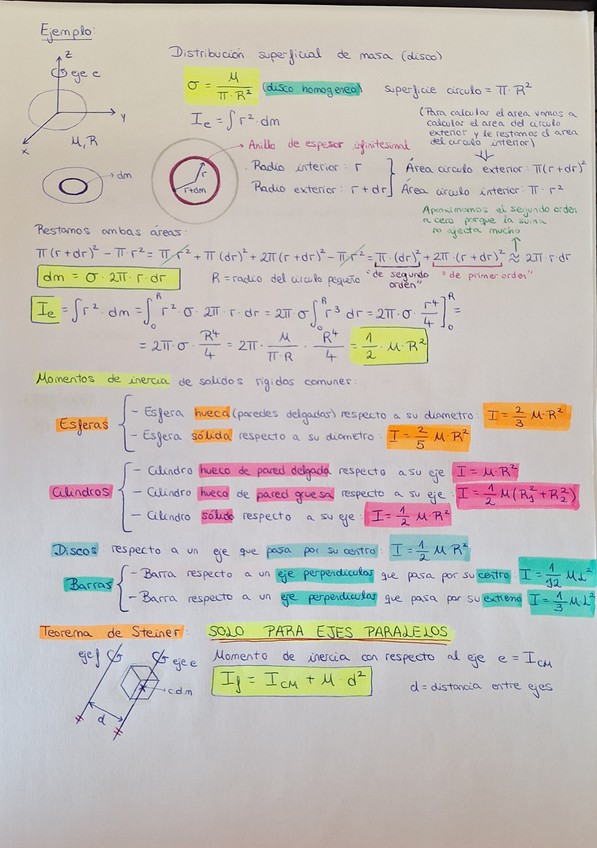 Ejemplo:
Distribución superficial de masa (disco)
z
eje e
y
x
M, R
σ = M / π·R² (disco homogeneo) superficie circulo = π·R²
I_e = ∫ r²·dm
(Para calcular el area vamos a
calcular el area del circulo
exterior y le restamos el area
del circulo interior)
Anillo de espesor infinitesimal
dm
r
r+dm
Radio interior: r
Radio exterior: r + dr
Área circulo exterior: π(r+dr)²
Área circulo interior: π·r²
Aproximamos el segundo orden
a cero porque la suma
no afecta mucho
Restamos ambas áreas:
π(r+dr)² − π r² = π r² + π(dr)² + 2π(r+dr)² − π·r² = π·(dr)² + 2π·(r+dr)² ≈ 2π r·dr
"de segundo orden" "de primer orden"
dm = σ·2π·r·dr R = radio del circulo pequeño
I_e = ∫r²·dm = ∫₀ᴿ r²·σ·2π·r·dr = 2π·σ ∫₀ᴿ r³ dr = 2π·σ· r⁴/4 ]₀ᴿ =
= 2π·σ· R⁴/4 = 2π· M/π·R · R⁴/4 = 1/2·M·R²
Momentos de inercia de solidos rigidos comunes:
Esferas
- Esfera hueca (paredes delgadas) respecto a su diametro: I = 2/3 M·R²
- Esfera sólida respecto a su diametro: I = 2/5 M·R²
Cilindros
- Cilindro hueco de pared delgada respecto a su eje I = M·R²
- Cilindro hueco de pared gruesa respecto a su eje: I = 1/2 M(R₁² + R₂²)
- Cilindro sólido respecto a su eje: I = 1/2 M·R²
Discos respecto a un eje que pasa por su centro: I = 1/2 M R²
Barras
- Barra respecto a un eje perpendicular que pasa por su centro: I = 1/12 M L²
- Barra respecto a un eje perpendicular que pasa por su extremo I = 1/3 M·L²
Teorema de Steiner: SOLO PARA EJES PARALELOS
eje f
eje e
c.d.m
d
Momento de inercia con respecto al eje e = I_CM
I_f = I_CM + M·d² d = distancia entre ejes